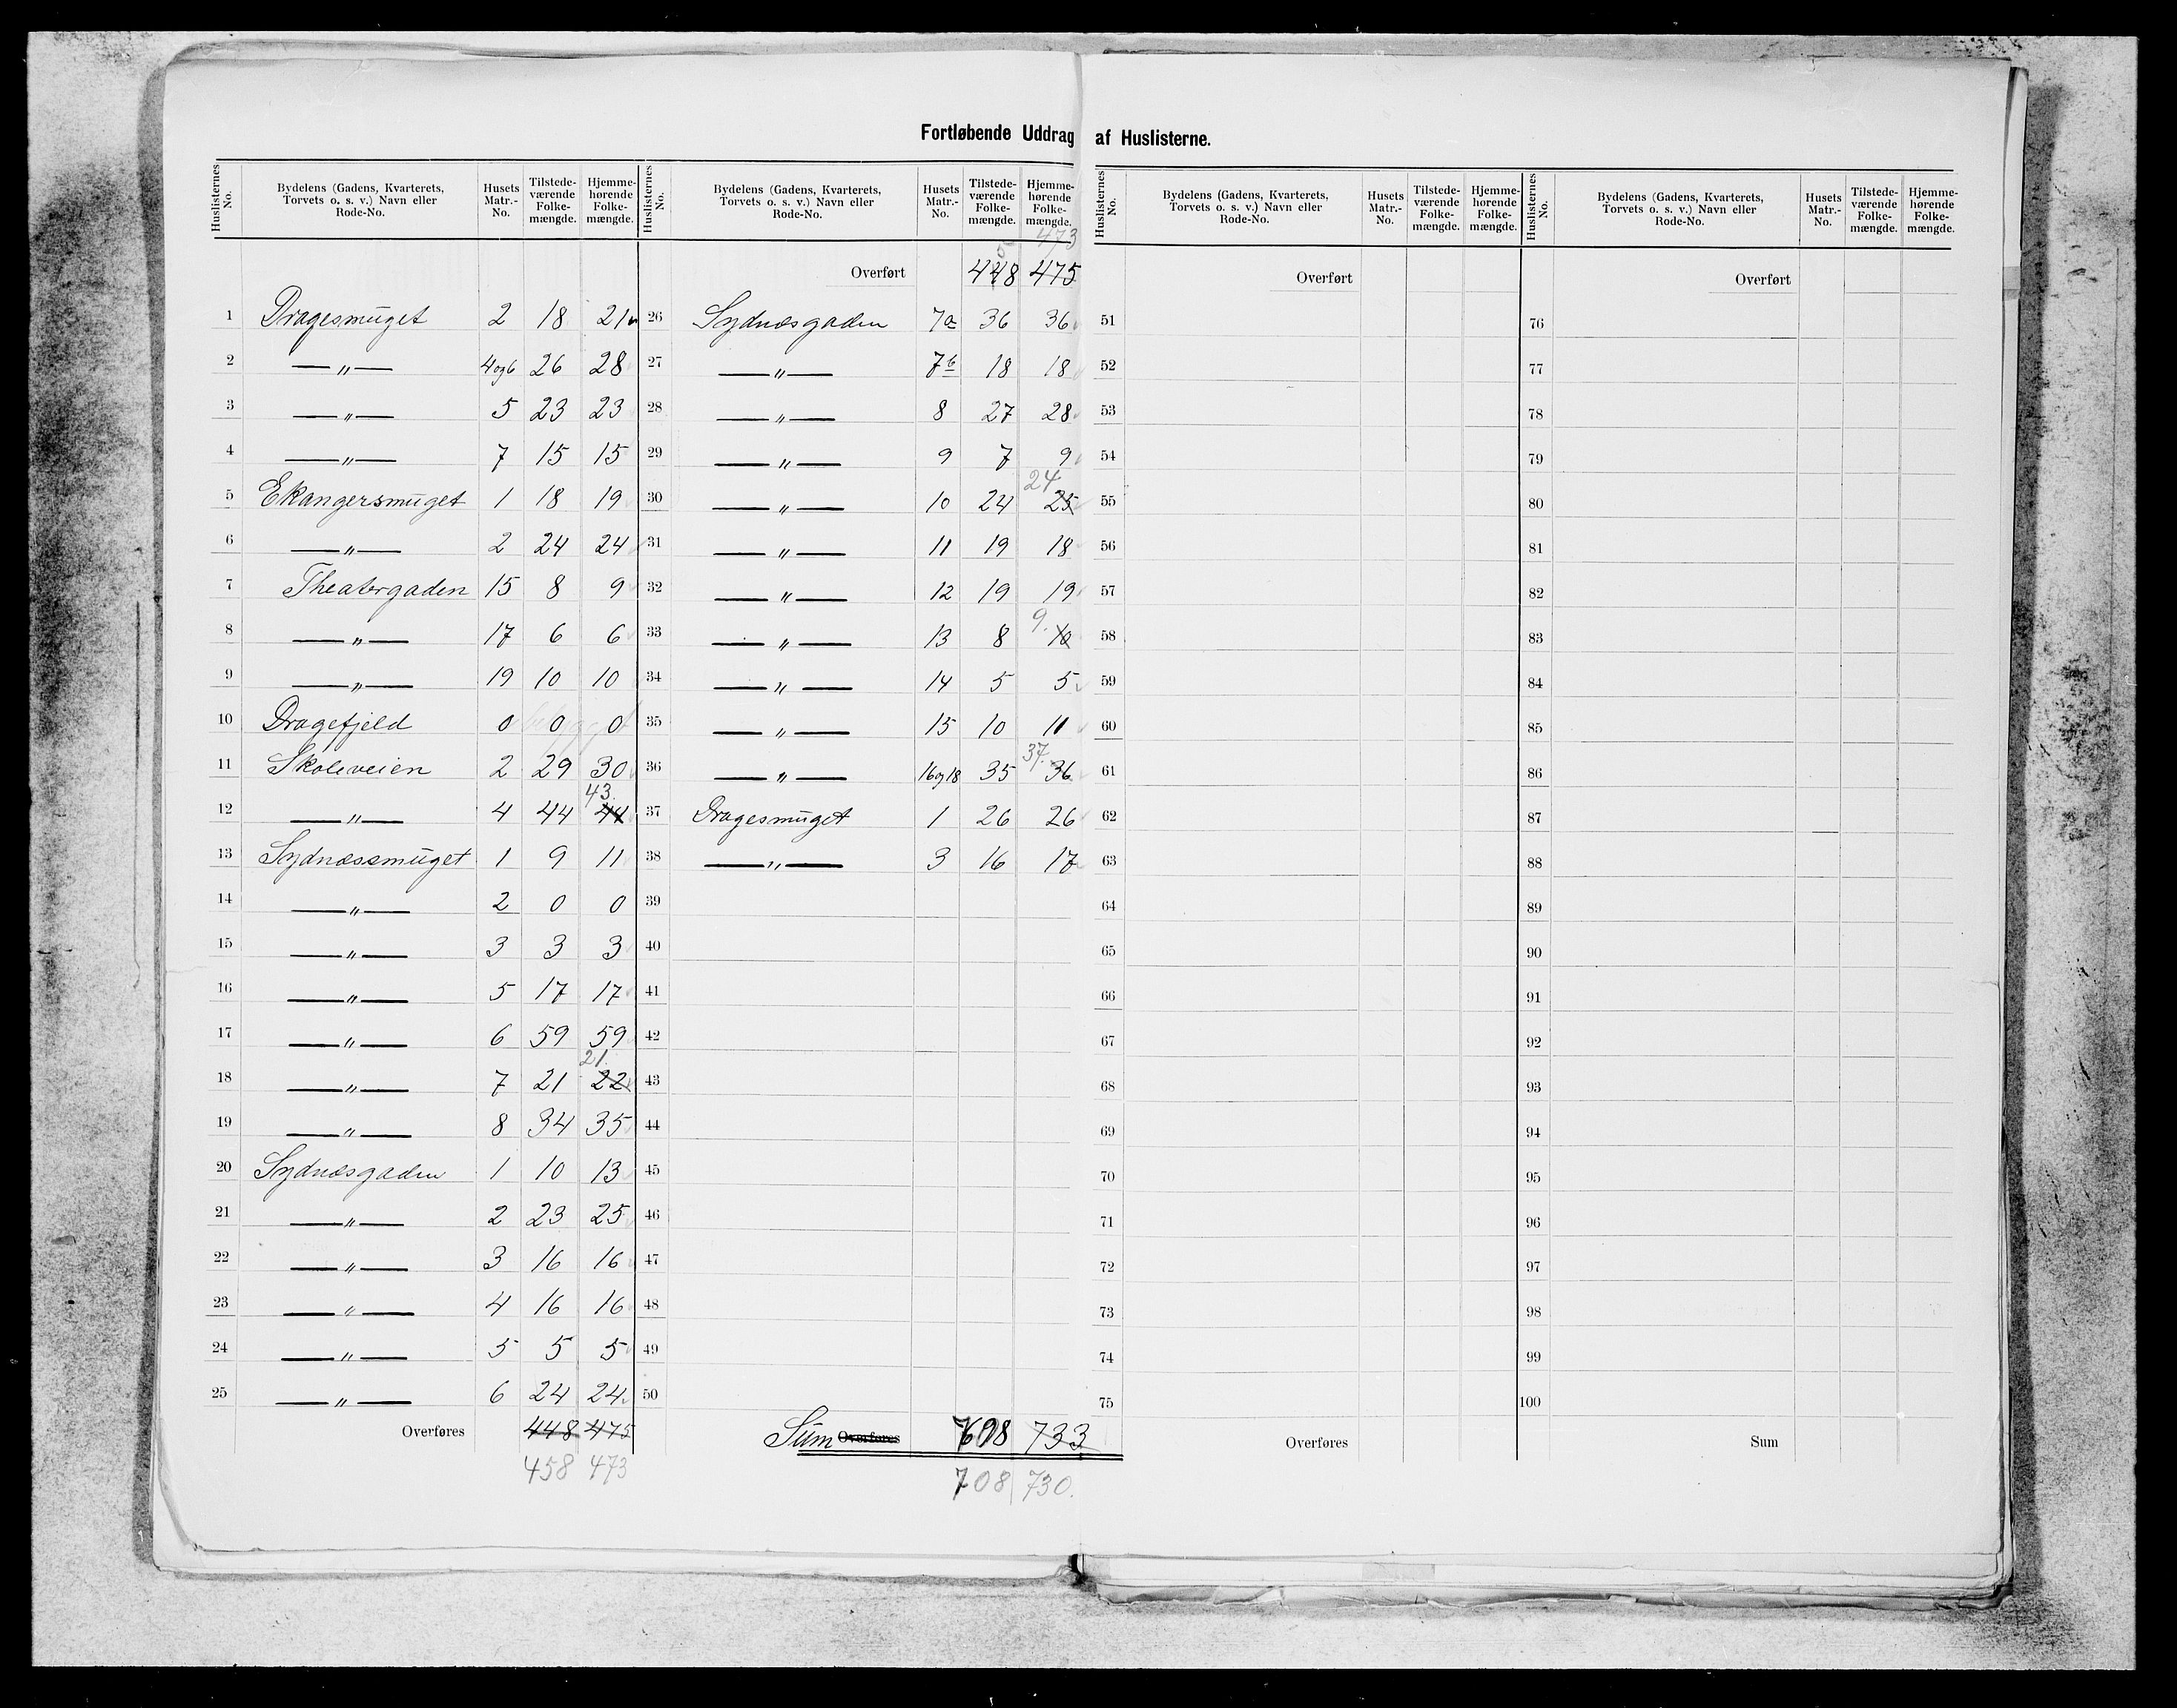 Fortløbende Uddrag af Huslisterne.
Huslisternes No. | Bydelens (Gadens, Kvarterets, Torvets o. s. v.) Navn eller Rode-No. | Husets Matr.-No. | Tilstedeværende Folkemængde. | Hjemmehørende Folkemængde.
1 Dragesmuget 2 18 21
2 —„— 4og6 26 28
3 —„— 5 23 23
4 —„— 7 15 15
5 Ekangersmuget 1 18 19
6 —„— 2 24 24
7 Theatergaden 15 8 9
8 —„— 17 6 6
9 —„— 19 10 10
10 Dragefjeld 0 0 0
11 Skoleveien 2 29 30
12 —„— 4 44 44 43.
13 Sydnæssmuget 1 9 11
14 —„— 2 0 0
15 —„— 3 3 3
16 —„— 5 17 17
17 —„— 6 59 59
18 —„— 7 21 22 21.
19 —„— 8 34 35
20 Sydnæsgaden 1 10 13
21 —„— 2 23 25
22 —„— 3 16 16
23 —„— 4 16 16
24 —„— 5 5 5
25 —„— 6 24 24
Overføres 448 475
458 473
Huslisternes No. | Bydelens (Gadens, Kvarterets, Torvets o. s. v.) Navn eller Rode-No. | Husets Matr.-No. | Tilstedeværende Folkemængde. | Hjemmehørende Folkemængde.
5 473
Overført 448 475
26 Sydnæsgaden 7a 36 36
27 —„— 7b 18 18
28 —„— 8 27 28
29 —„— 9 7 9
30 —„— 10 24 25 24
31 —„— 11 19 18
32 —„— 12 19 19
33 —„— 13 8 10 9.
34 —„— 14 5 5
35 —„— 15 10 11
36 —„— 16og18 35 36 37.
37 Dragesmuget 1 26 26
38 —„— 3 16 17
39
40
41
42
43
44
45
46
47
48
49
50
Sum Overføres 698 733
708 730.
Huslisternes No. | Bydelens (Gadens, Kvarterets, Torvets o. s. v.) Navn eller Rode-No. | Husets Matr.-No. | Tilstedeværende Folkemængde. | Hjemmehørende Folkemængde.
Overført
51
52
53
54
55
56
57
58
59
60
61
62
63
64
65
66
67
68
69
70
71
72
73
74
75
Overføres
Huslisternes No. | Bydelens (Gadens, Kvarterets, Torvets o. s. v.) Navn eller Rode-No. | Husets Matr.-No. | Tilstedeværende Folkemængde. | Hjemmehørende Folkemængde.
Overført
76
77
78
79
80
81
82
83
84
85
86
87
88
89
90
91
92
93
94
95
96
97
98
99
100
Sum